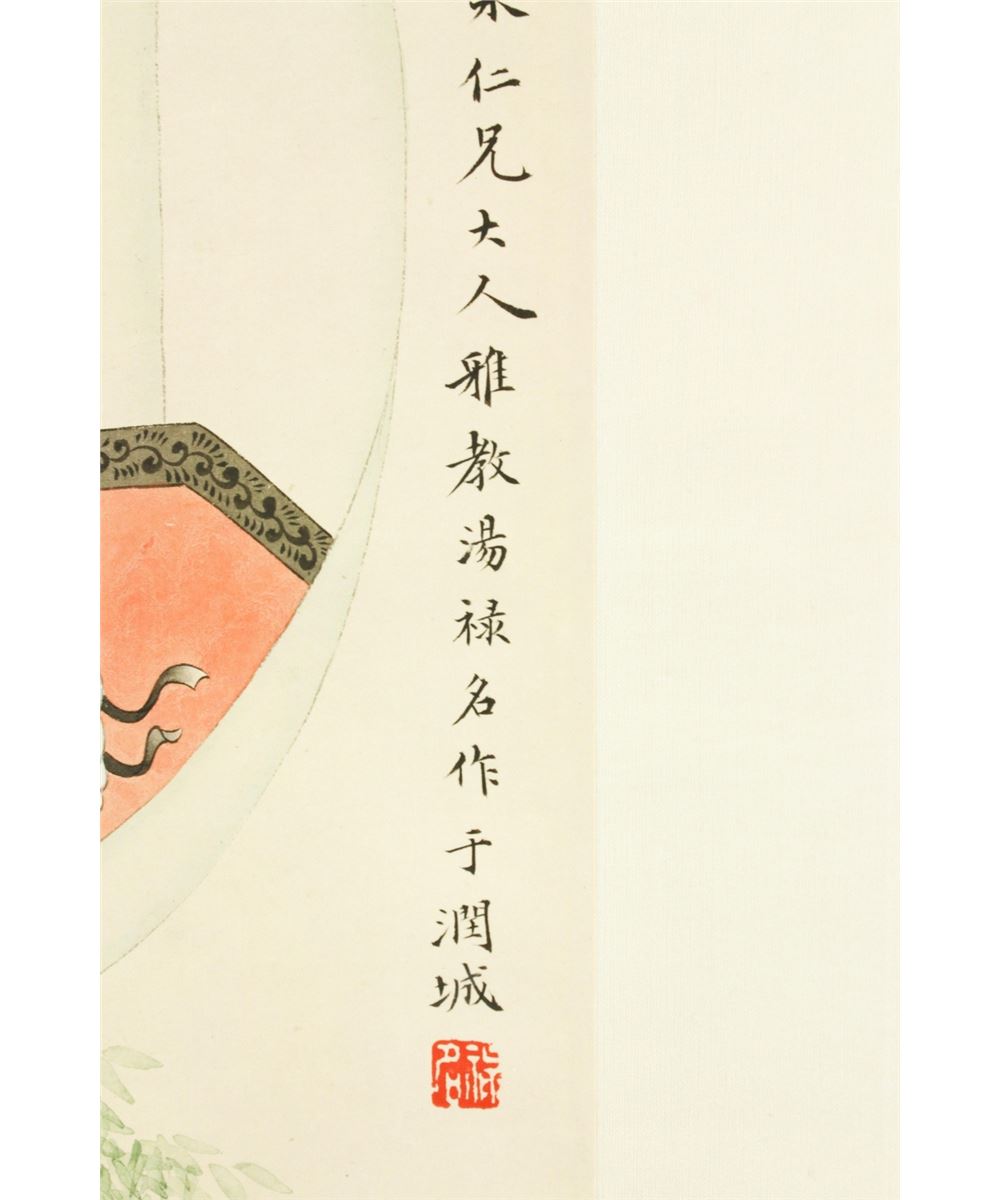 仁兄大人雅教湯禄名作于潤城
禄名